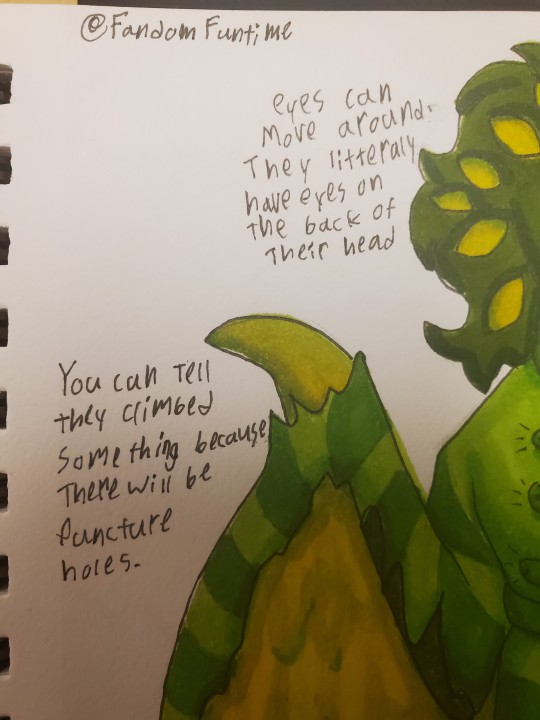 @Fandom Funtime
eyes can
Move around.
They litteraly
have eyes on
the back of
Their head
You can Tell
they climbed
Something because
There will be
Puncture
holes.